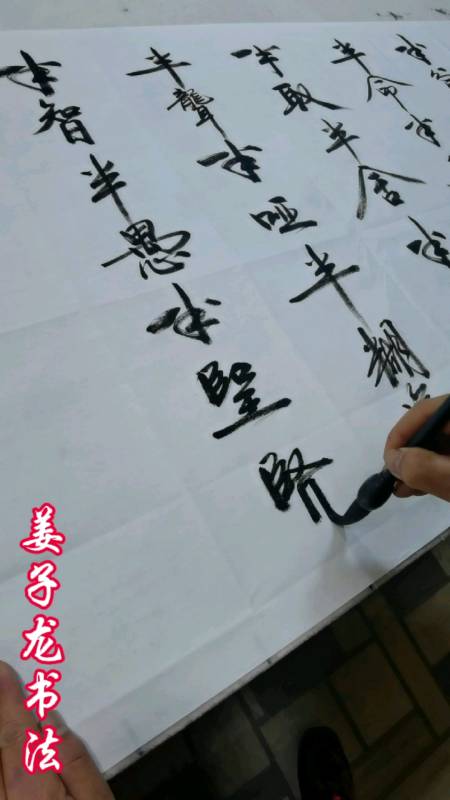 半窮
半命半
半取半舍半
半聾半啞半糊
半智半愚半聖賢
姜子龙书法